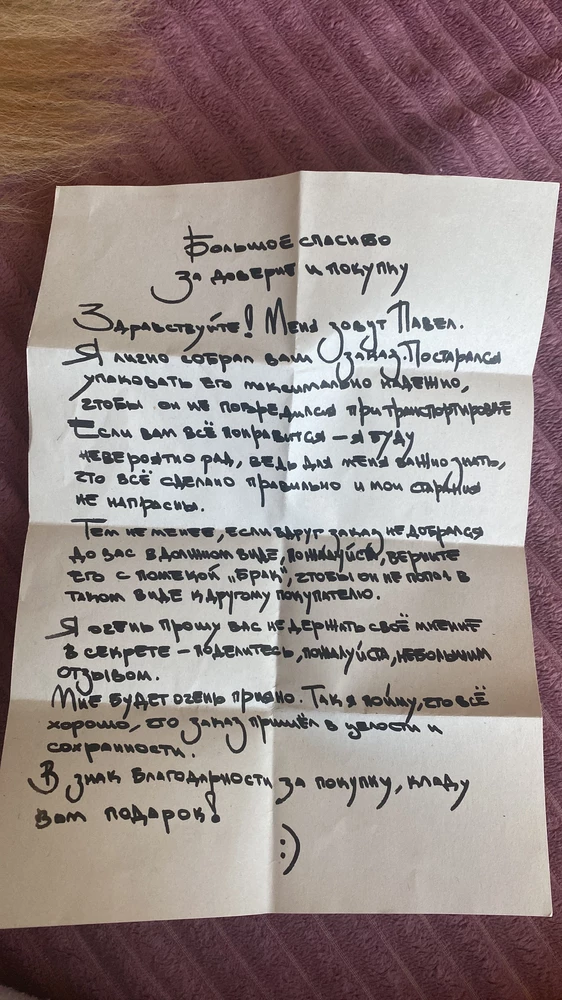 Большое спасибо
за доверие и покупку
Здравствуйте! Меня зовут Павел.
Я лично собрал ваш заказ. Постарался
упаковать его максимально надежно,
чтобы он не повредился при транспортировке
Если вам всё понравится – я буду
невероятно рад, ведь для меня важно знать,
что всё сделано правильно и мои старания
не напрасны.
Тем не менее, если вдруг заказ не добрался
до вас в должном виде, пожалуйста, верните
его с пометкой „Брак“, чтобы он не попал в
таком виде к другому покупателю.
Я очень прошу вас не держать своё мнение
в секрете – поделитесь, пожалуйста, небольшим
отзывом.
Мне будет очень приятно. Так я пойму, что всё
хорошо, что заказ пришёл в целости и
сохранности.
В знак благодарности за покупку, кладу
вам подарок!
:)